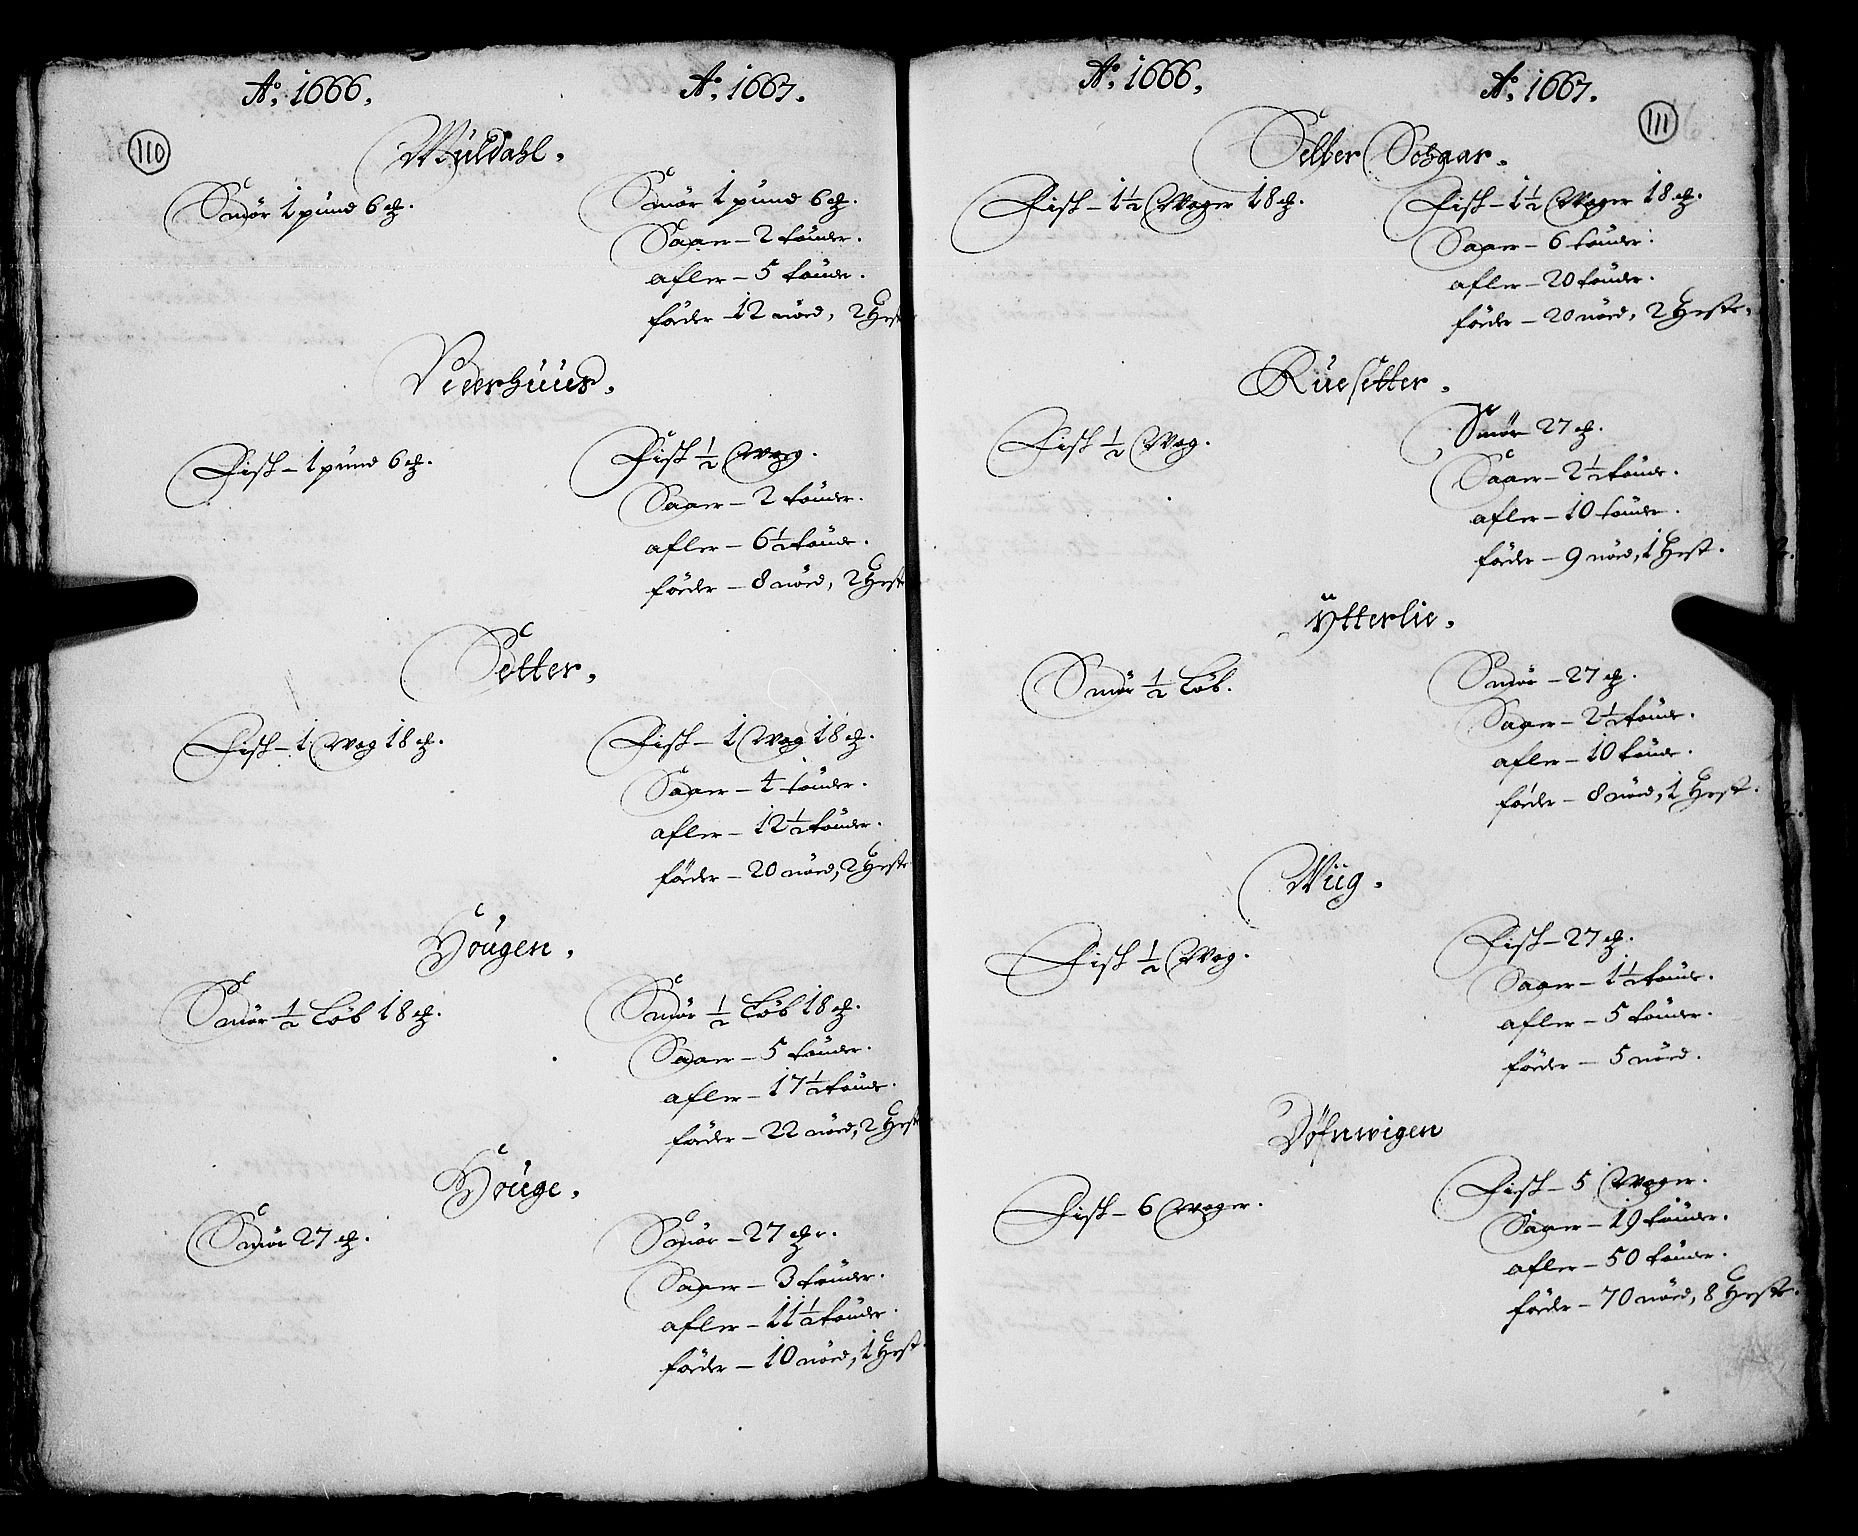 110
Ao. 1666.
Ao. 1667.
Müldahl.
Smör 1 pund 6 ℔.
Smör 1 pund 6 ℔.
Saaer – 2 tönder.
afler – 5 tönder.
föder – 12 nöed, 2 Hest
Vederhuus.
Fisk – 1 pund 6 ℔.
Fisk ½ Wog.
Saaer – 2 tönder.
afler – 6½ tönde.
föder – 8 nöed, 2 Hest
Setter.
Fisk – 1 Wog 18 ℔.
Fisk – 1 Wog 18 ℔.
Saaer – 4 tönder.
afler – 12½ tönder.
föder – 20 nöed, 2 Hest
Hougen.
Smör ½ Løb 18 ℔.
Smör ½ Løb 18 ℔.
Saaer – 5 tönder.
afler – 17½ tönde.
föder – 22 nöed, 2 Hest
Houge.
Smör 27 ℔.
Smör – 27 ℔r.
Saaer – 3 tönder.
afler – 11½ tönder.
föder – 10 nöed, 1 Hest.
111
Ao. 1666.
Ao. 1667.
Setter Schaar.
Fisk – 1½ Woger 18 ℔.
Fisk – 1½ Woger 18 ℔.
Saaer – 6 tönder.
afler – 20 tönder.
föder – 20 nöed, 2 Heste.
Rüesetter.
Fisk ½ Wog.
Smör 27 ℔.
Saaer – 2½ tönde.
afler – 10 tönder.
föder – 9 nöed, 1 Hest.
Ytterlie.
Smör ½ Løb.
Smör – 27 ℔.
Saaer – 2½ tönde.
afler – 10 tönde.
föder – 8 nöed, 1 Hest.
Wiig.
Fisk ½ Wog.
Fisk – 27 ℔.
Saaer – 1½ tönde.
afler – 5 tönder.
föder – 5 nöed.
Döfnwigen
Fisk – 6 Woger.
Fisk – 5 Woger.
Saaer – 19 tönder.
afler – 50 tönder.
föder – 70 nöed, 8 Heste.